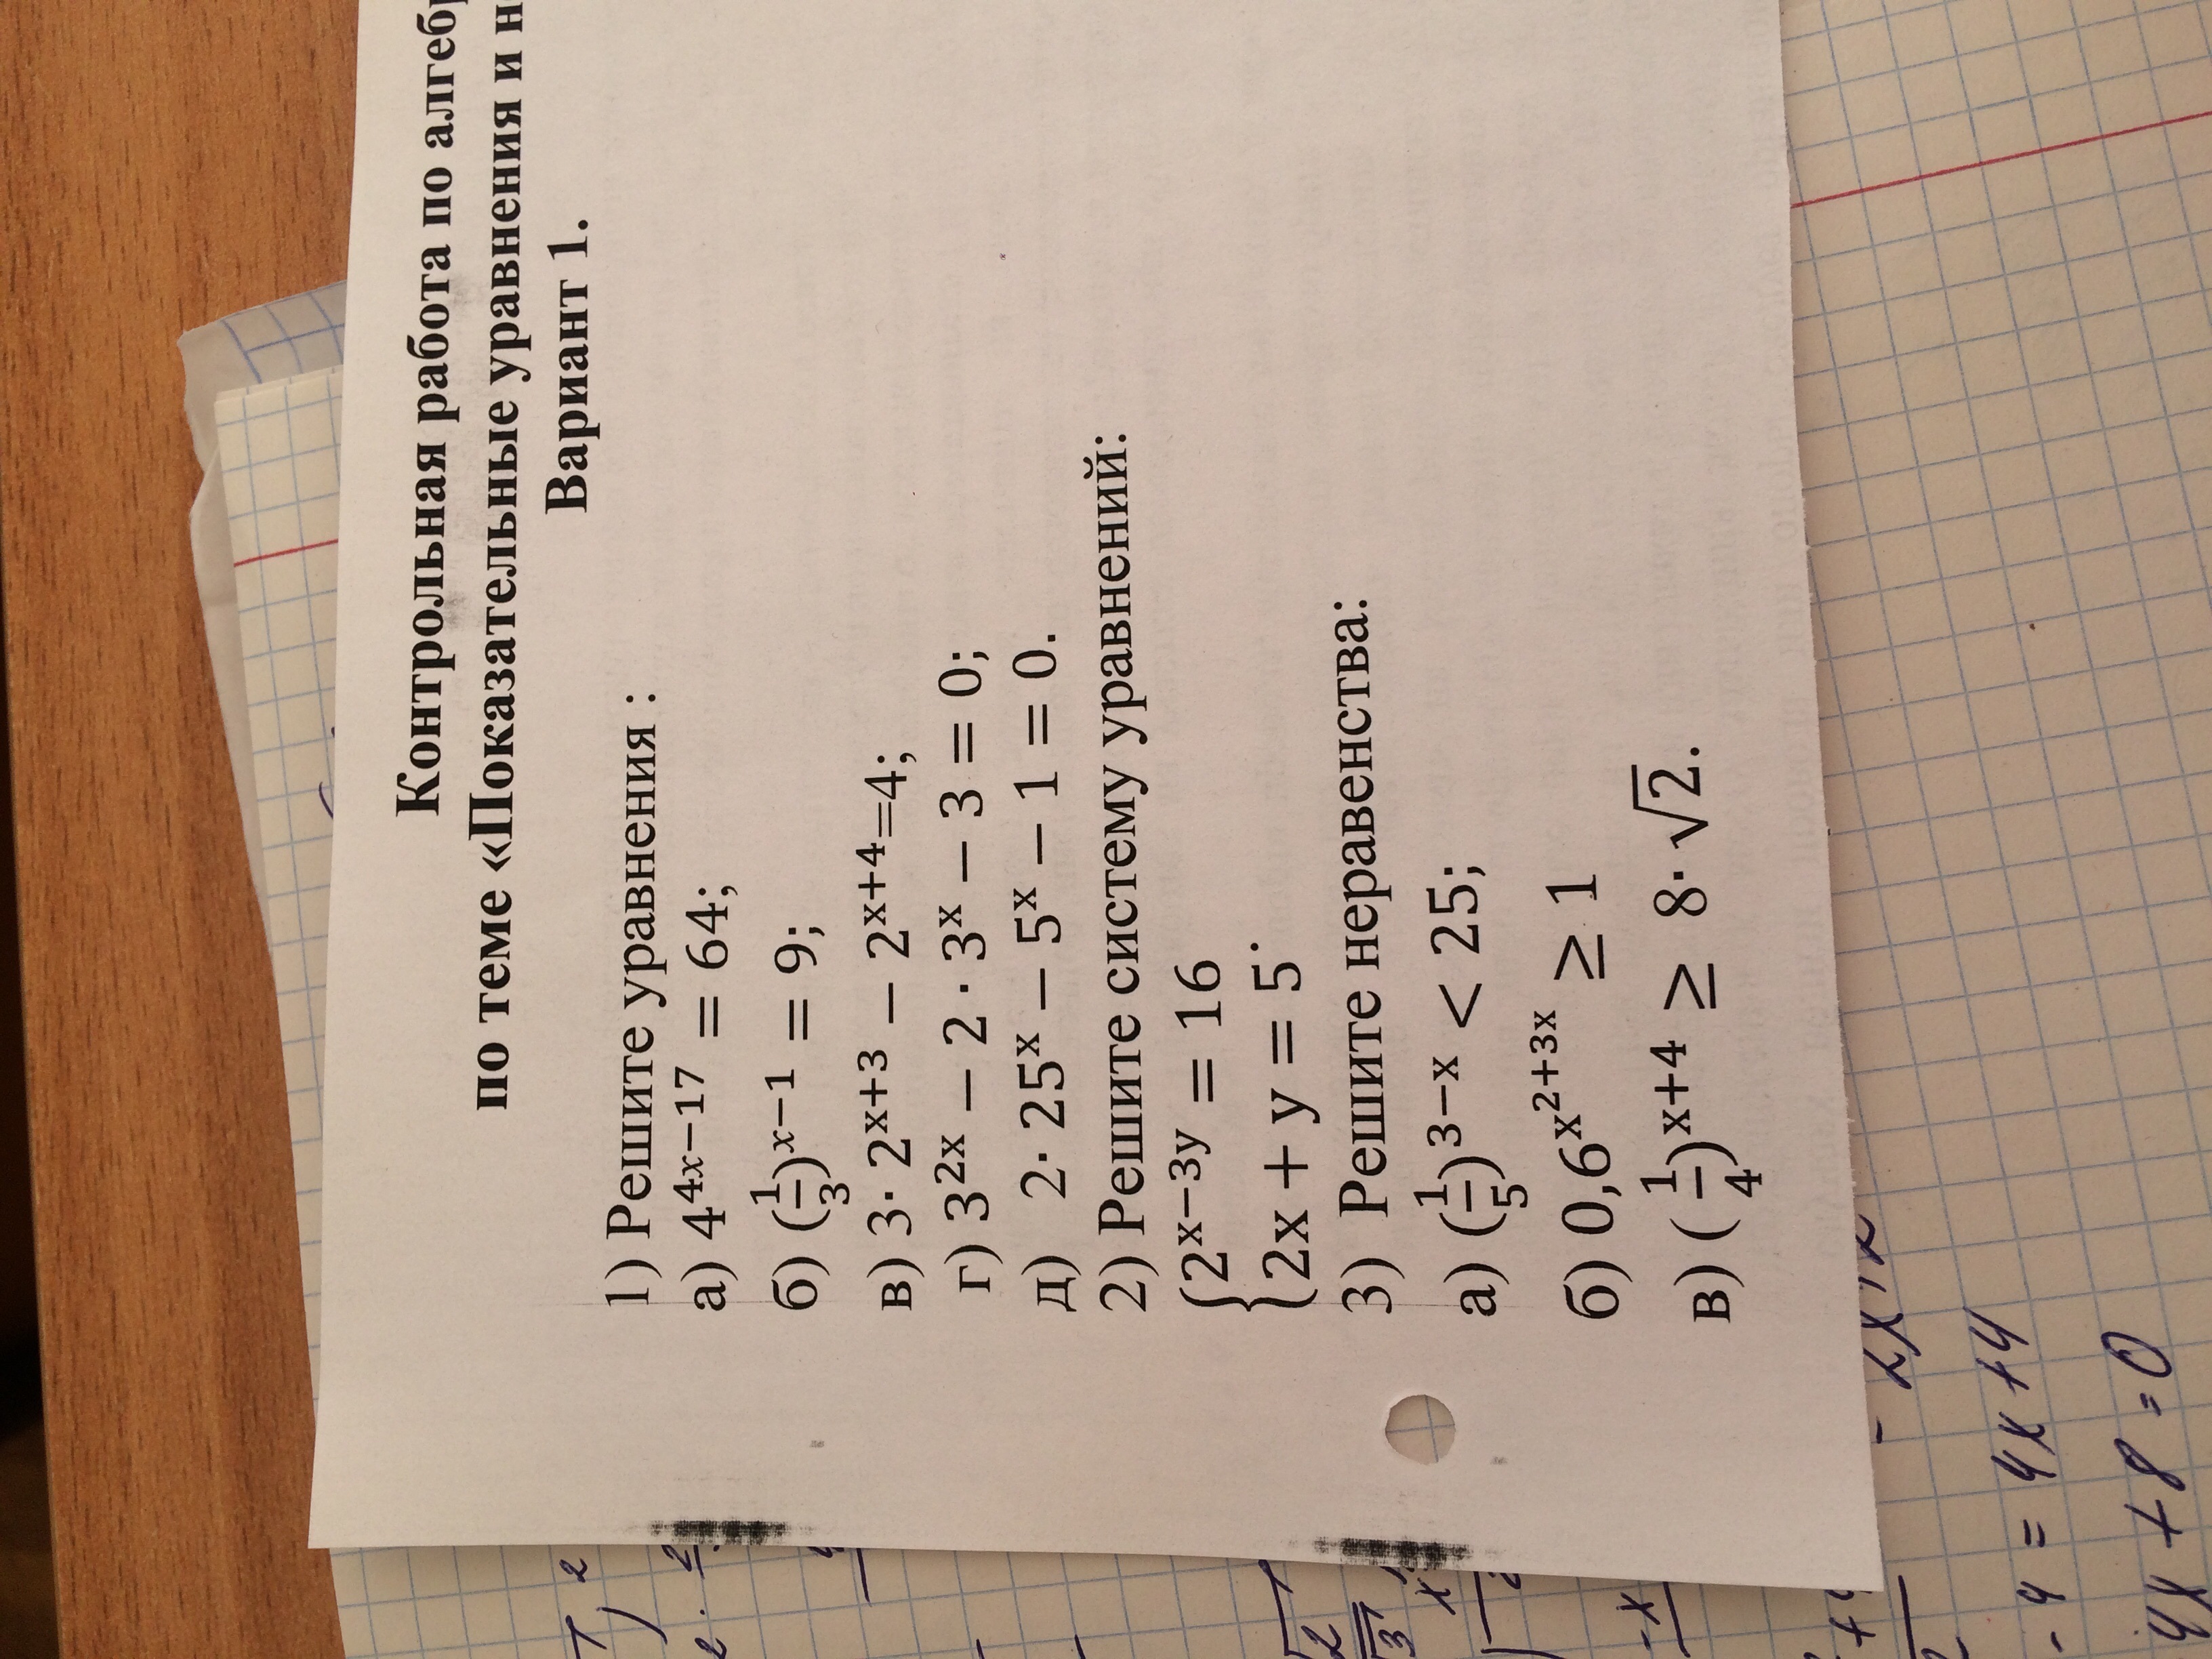 Контрольная работа по
по теме «Показательные уравнения и
Вариант 1.
1) Решите уравнения :
а) 4^{4x−17} = 64;
б) (1/3)^{x−1} = 9;
в) 3· 2^{x+3} − 2^{x+4}=4;
г) 3^{2x} − 2 · 3^x − 3 = 0;
д) 2· 25^x − 5^x − 1 = 0.
2) Решите систему уравнений:
{2^{x−3y} = 16
{2x + y = 5.
3) Решите неравенства:
а) (1/5)^{3−x} < 25;
б) 0,6^{x^2+3x} ≥ 1
в) (1/4)^{x+4} ≥ 8·√2.
- 4 = 4x + 4
4x + 8 = 0